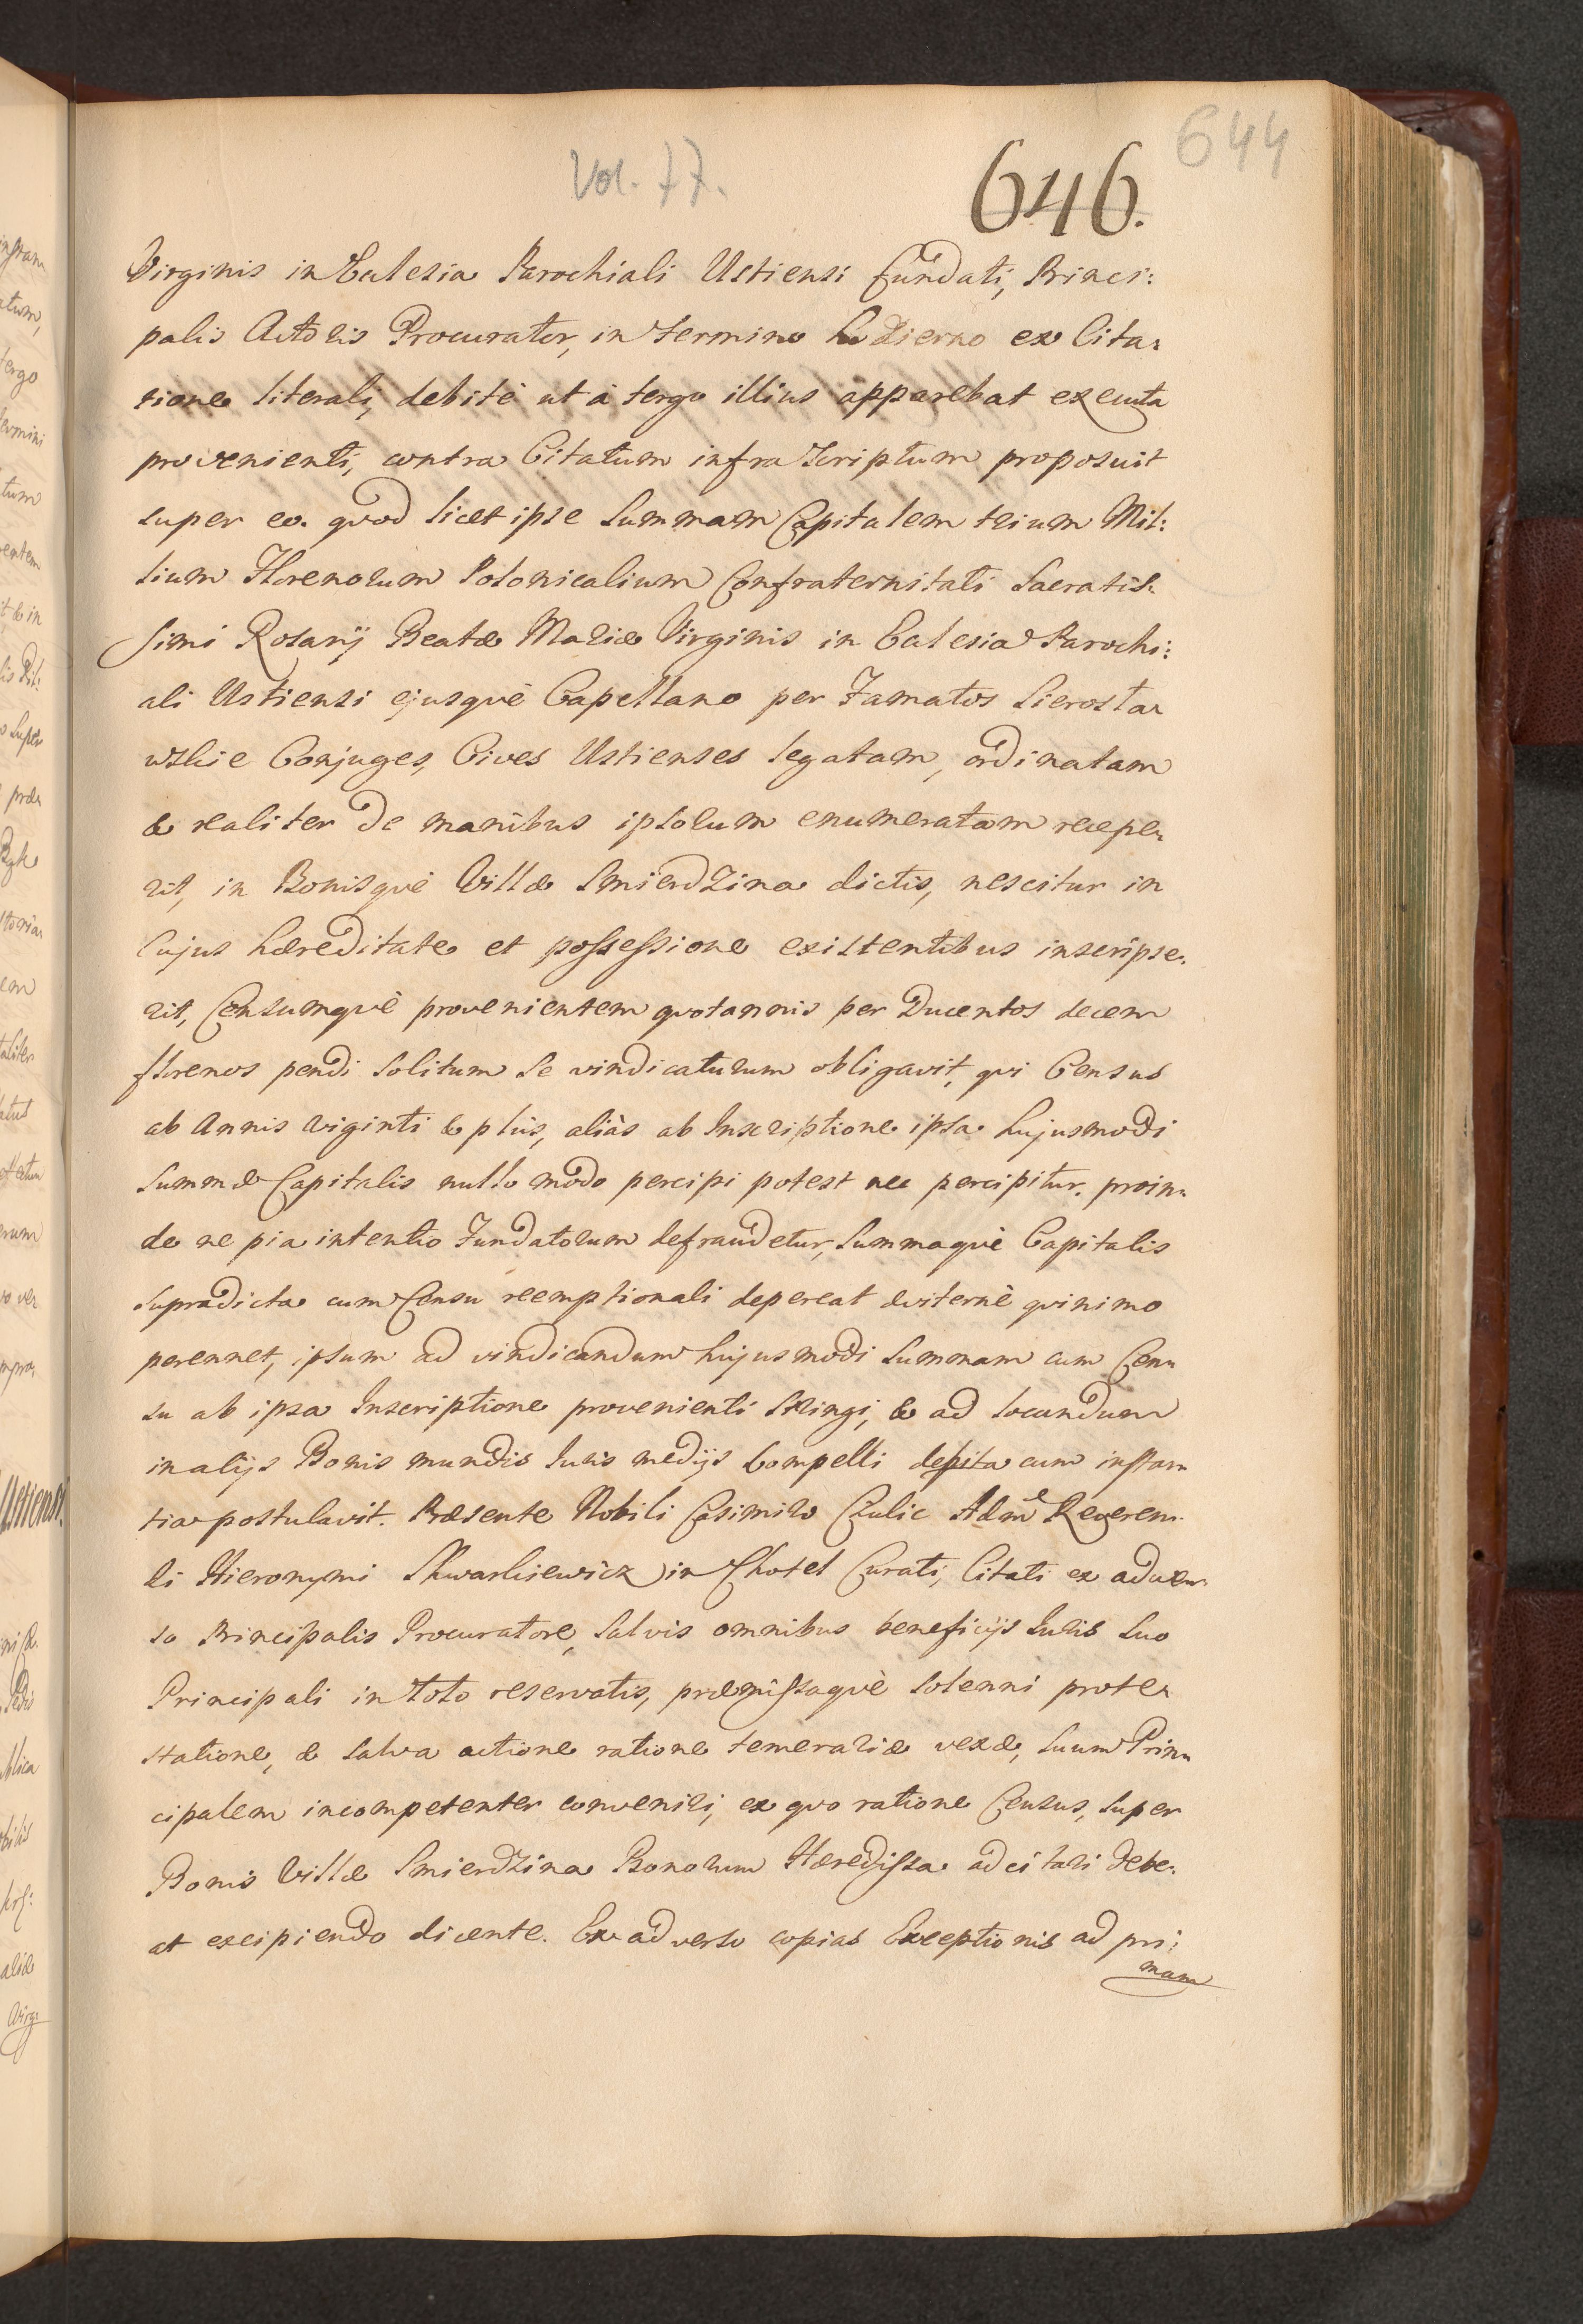 644
Vol. 77.
646.
Virginis in Ecclesia Parochiali Ustiensi fundati, Princi:
palis Actoris Procurator, in termino hodierno ex Cita:
tione literali, debitè ut à tergo illius apparebat executa
provenienti, contra Citatum infra Scriptum proposuit
super eo. quod licet ipse Summam Capitalem trium Mil:
lium Florenorum Polonicalium Confraternitati Sacratis:
simi Rosarÿ Beatæ Mariæ Virginis in Ecclesia Parochi:
ali Ustiensi ejusquè Capellano per Famatos Sierosta:
wskie Conjuges, Cives Ustienses legatam, ordinatam
& realiter de manibus ipsorum enumeratam recepe:
rit, in Bonisquè Villæ Smierdzina dictis, nescitur in
Cujus hæreditate et possessione existentibus inscripse:
rit, Censumquè provenientem quotannis per Ducentos decem
florenos pendi Solitum Se vindicaturum obligavit, qui Census
ab Annis viginti & plùs, aliàs ab Inscriptione ipsa hujusmodi
Summæ Capitalis nullo modo percipi potest nec percipitur. proin:
de ne pia intentio Fundatorum defraudetur, Summaquè Capitalis
Supradicta cum Censu reemptionali depereat æviternè quinimo
perennet, ipsum ad vindicandum hujusmodi Summam cum Cen:
su ab ipsa Inscriptione provenienti Stringi, & ad locandum
in alÿs Bonis mundis Iuris medÿs Compelli debita cum instan:
tia postulavit. Præsente Nobili Casimiro Czulic Adm̃ Reveren:
di Hieronymi Skwarkiewicz in Chotel Curati, Citati ex adver:
so Principalis Procuratore, Salvis omnibus beneficÿs Iuris Suo
Principali in toto reservatis, præmissaquè Solenni prote:
statione, & Salva actione ratione temerariæ vexæ, Suum Prin:
cipalem incompetenter conveniri, ex quo ratione Census, Super
Bonis Villæ Smierdzina Bonorum Hæredissa adcitari debe:
at excipiendo dicente. Ex adverso copias Exceptionis ad pri:
mam